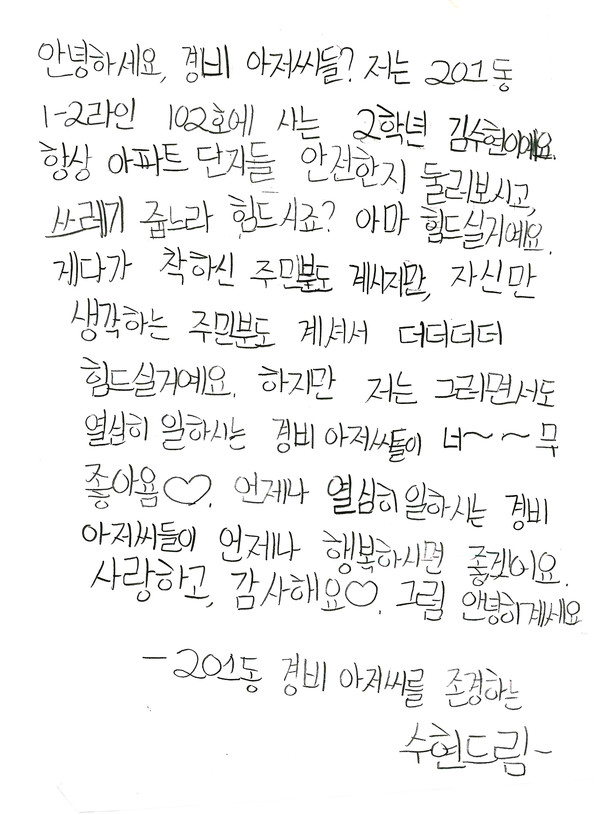 안녕하세요, 경비 아저씨들? 저는 201동
1-2라인 102호에 사는 2학년 김수현이예요.
항상 아파트 단지들 안전한지 둘러보시고,
쓰레기 줍느라 힘드시죠? 아마 힘드실거예요.
게다가 착하신 주민분도 계시지만, 자신만
생각하는 주민분도 계셔서 더더더더
힘드실거예요. 하지만 저는 그러면서도
열심히 일하시는 경비 아저씨들이 너~~무
좋아욤♡. 언제나 열심히 일하시는 경비
아저씨들이 언제나 행복하시면 좋겠어요.
사랑하고, 감사해요♡. 그럼 안녕히계세요
-201동 경비 아저씨를 존경하는
수현드림-